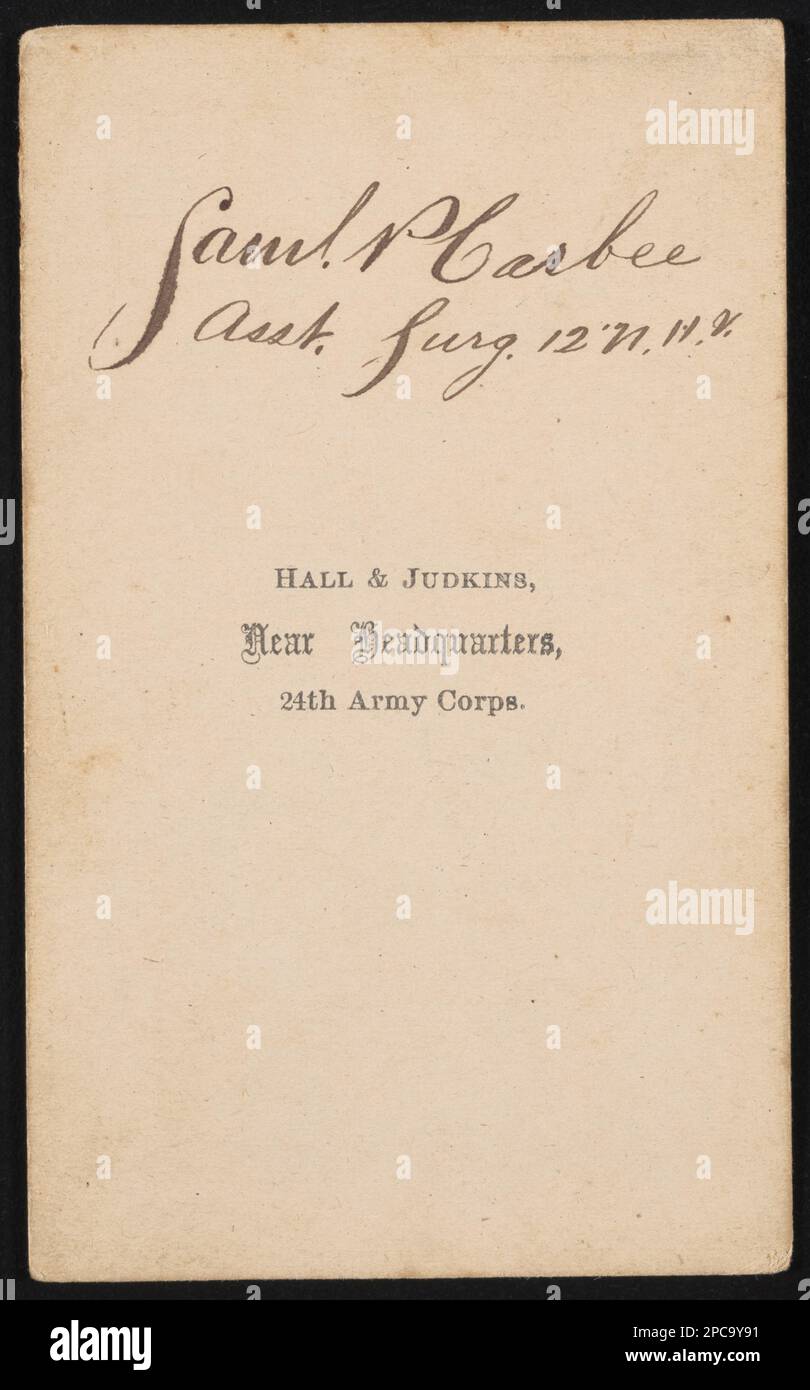 Saml. P Carbee
Asst. Surg. 12" N. H. V.
HALL & JUDKINS,
Near Headquarters,
24th Army Corps.
alamy
alamy
alamy
Image ID: 2PC9Y91
www.alamy.com